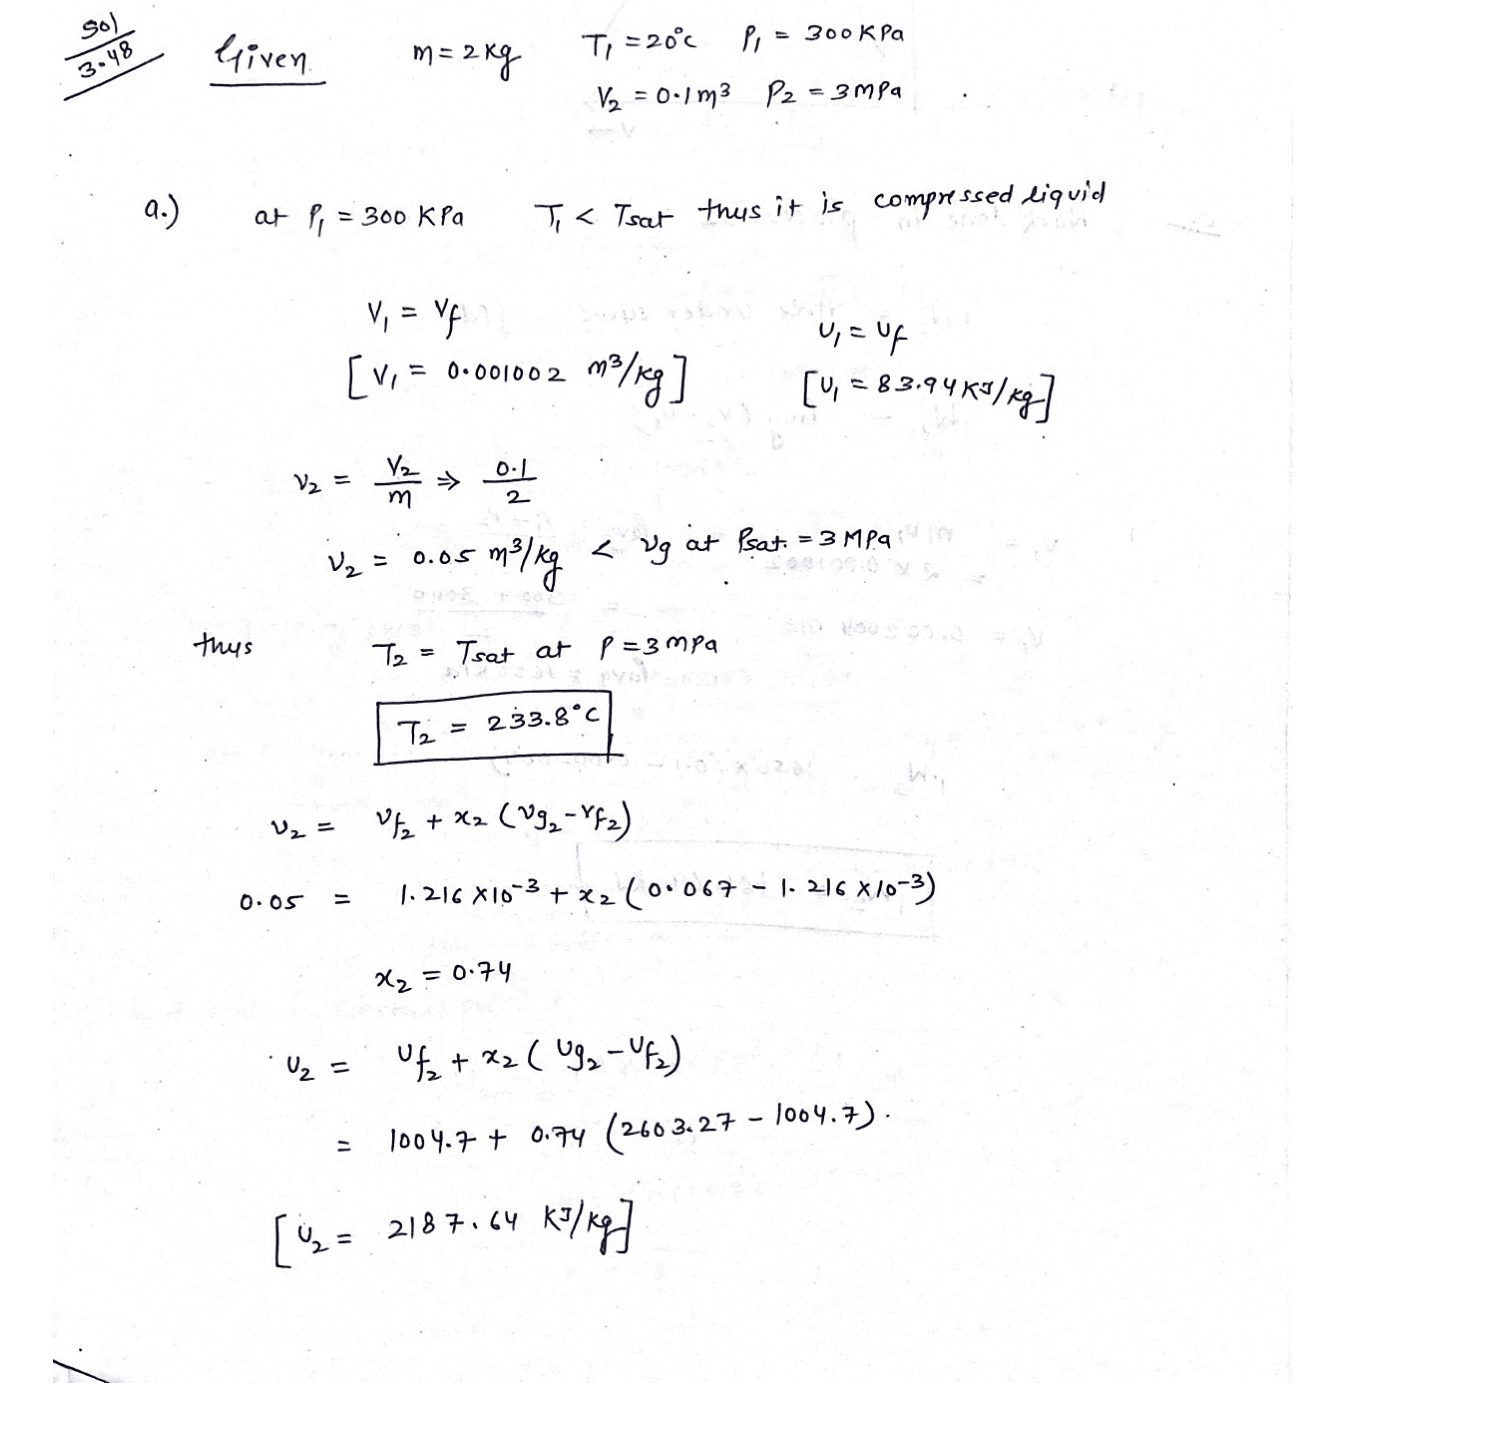 Sol
3.48
Given m = 2 kg T₁ = 20°C P₁ = 300 KPa
V₂ = 0.1 m³ P₂ = 3 MPa
a.) at P₁ = 300 KPa T₁ < Tsat thus it is compressed liquid
V₁ = Vf
U₁ = Uf
[V₁ = 0.001002 m³/kg]
[U₁ = 83.94 KJ/kg]
v₂ = V₂/m ⇒ 0.1/2
v₂ = 0.05 m³/kg < vg at Psat. = 3 MPa
thus T₂ = Tsat at P = 3 MPa
T₂ = 233.8°C
v₂ = vf₂ + x₂ (vg₂ - vf₂)
0.05 = 1.216 × 10⁻³ + x₂ (0.067 - 1.216 × 10⁻³)
x₂ = 0.74
U₂ = Uf₂ + x₂ (Ug₂ - Uf₂)
= 1004.7 + 0.74 (2603.27 - 1004.7).
[U₂ = 2187.64 KJ/kg]